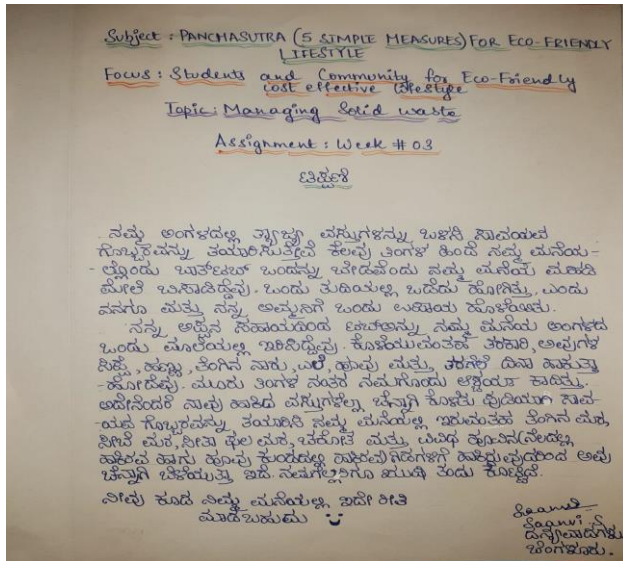 Subject : PANCHASUTRA (5 SIMPLE MEASURES) FOR ECO-FRIENDLY
LIFESTYLE
Focus : Students and Community for Eco-Friendly
cost effective lifestyle
Topic : Managing Solid waste
Assignment : Week # 03
ಟಿಪ್ಪಣಿ
ನಮ್ಮ ಅಂಗಳದಲ್ಲಿ ತ್ಯಾಜ್ಯ ವಸ್ತುಗಳನ್ನು ಬಳಸಿ ಸಾವಯವ
ಗೊಬ್ಬರವನ್ನು ತಯಾರಿಸುತ್ತೇವೆ ಕೆಲವು ತಿಂಗಳ ಹಿಂದೆ ನಮ್ಮ ಮನೆಯ-
-ಲ್ಲೊಂದು ಬಾತ್‌ಟಬ್ ಒಂದನ್ನು ಬೇಡವೆಂದು ನಮ್ಮ ಮನೆಯ ಮಹಡಿ
ಮೇಲೆ ಬಿಸಾಡಿದ್ದೆವು. ಒಂದು ತುದಿಯಲ್ಲಿ ಒಡೆದು ಹೋಗಿತ್ತು, ಎಂದು
ನನಗೂ ಮತ್ತು ನನ್ನ ಅಮ್ಮನಿಗೆ ಒಂದು ಉಪಾಯ ಹೊಳೆಯಿತು.
ನನ್ನ ಅಪ್ಪನ ಸಹಾಯದಿಂದ ಟಬ್‌ಅನ್ನು ನಮ್ಮ ಮನೆಯ ಅಂಗಳದ
ಒಂದು ಮೂಲೆಯಲ್ಲಿ ಇರಿಸಿದ್ದೆವು. ಕೊಳೆಯುವಂತಹ ತರಕಾರಿ, ಅವುಗಳ
ಸಿಪ್ಪೆ, ಹಣ್ಣು, ತೆಂಗಿನ ನಾರು, ಎಲೆ, ಹೂವು ಮತ್ತು ತರಗೆಲೆ ದಿನಾ ಹಾಕುತ್ತಾ
-ಹೋದೆವು. ಮೂರು ತಿಂಗಳ ನಂತರ ನಮಗೊಂದು ಆಶ್ಚರ್ಯ ಕಾದಿತ್ತು.
ಅದೇನೆಂದರೆ ನಾವು ಹಾಕಿದ ವಸ್ತುಗಳೆಲ್ಲಾ ಚೆನ್ನಾಗಿ ಕೊಳೆತು ಪುಡಿಯಾಗಿ ಸಾವ-
-ಯವ ಗೊಬ್ಬರವನ್ನು ತಯಾರಿಸಿ ನಮ್ಮ ಮನೆಯಲ್ಲಿ ಇರುವಂತಹ ತೆಂಗಿನ ಮರ,
ಸೀಬೆ ಮರ, ಸೀತಾ ಫಲ ಮರ, ಮತ್ತು ವಿವಿಧ ಹೂವಿನ
ಹಾಕಿರುವ ಹಾಗು ಹೂವು ಕುಂಡದಲ್ಲಿ ಹಾಕಿರುವ ಗಿಡಗಳಿಗೆ ಹಾಕಿದ್ದುವುದರಿಂದ ಅವು
ಚೆನ್ನಾಗಿ ಬೆಳೆಯುತ್ತಾ ಇದೆ. ನಮಗೆಲ್ಲರಿಗೂ ಖುಷಿ ತಂದು ಕೊಟ್ಟಿದೆ.
ನೀವು ಕೂಡ ನಿಮ್ಮ ಮನೆಯಲ್ಲಿ ಇದೇ ರೀತಿ
ಮಾಡಬಹುದು
Saanvi
ಧನ್ಯವಾದಗಳು
ಬೆಂಗಳೂರು.